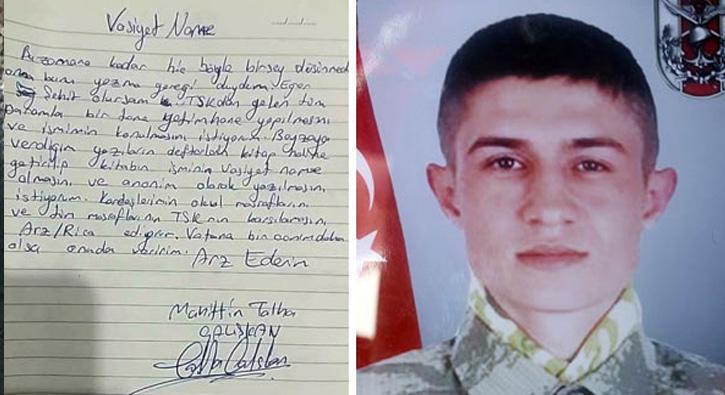 Vasiyet Name
Buzamana kadar hiç böyle birşey düşünmed
ama bunu yazma gereği duydum Eğer
Şehit olursam TSKdan gelen tüm
Paramla bir tane yetimhane yapılmasını
ve ismimin konulmasını istiyorum. Beyzaya
verdiğim yazıların defterlerin kitap haline
getirilip kitabın isminin Vasiyet name
olmasını ve anonim olarak yazılmasını
istiyorum. Kardeşlerimin okul masraflarını
ve tüm masraflarının TSK'nın karşılamasını
Arz/Rica ediyorum. Vatana bin canım daha
olsa onuda veririm. Arz Ederim
Mahittin Talha
ÇALIŞKAN